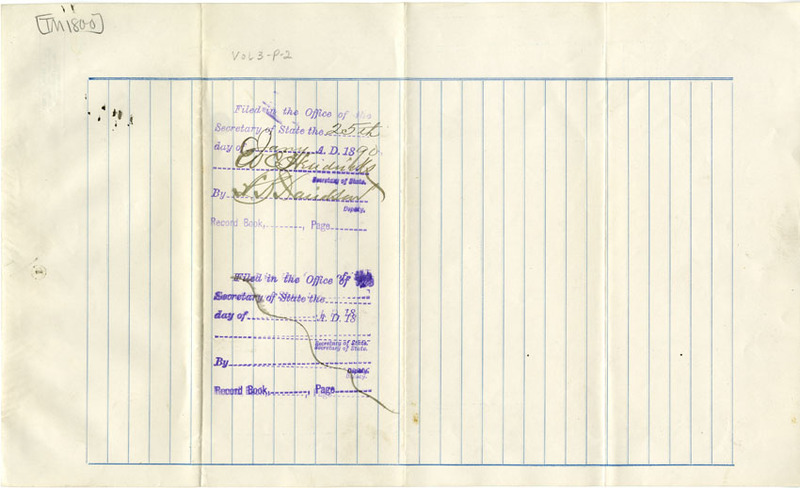 TM1800
VOL 3-P-2
Filed in the Office of the
Secretary of State the 25th
day of Jany A. D. 1890
E C Hendricks
Secretary of State.
By Davidson
Deputy.
Record Book, , Page
Filed in the Office of
Secretary of State the
day of A. D. 18
18
Secretary of State.
Secretary of State.
By
Deputy.
Record Book, , Page
1